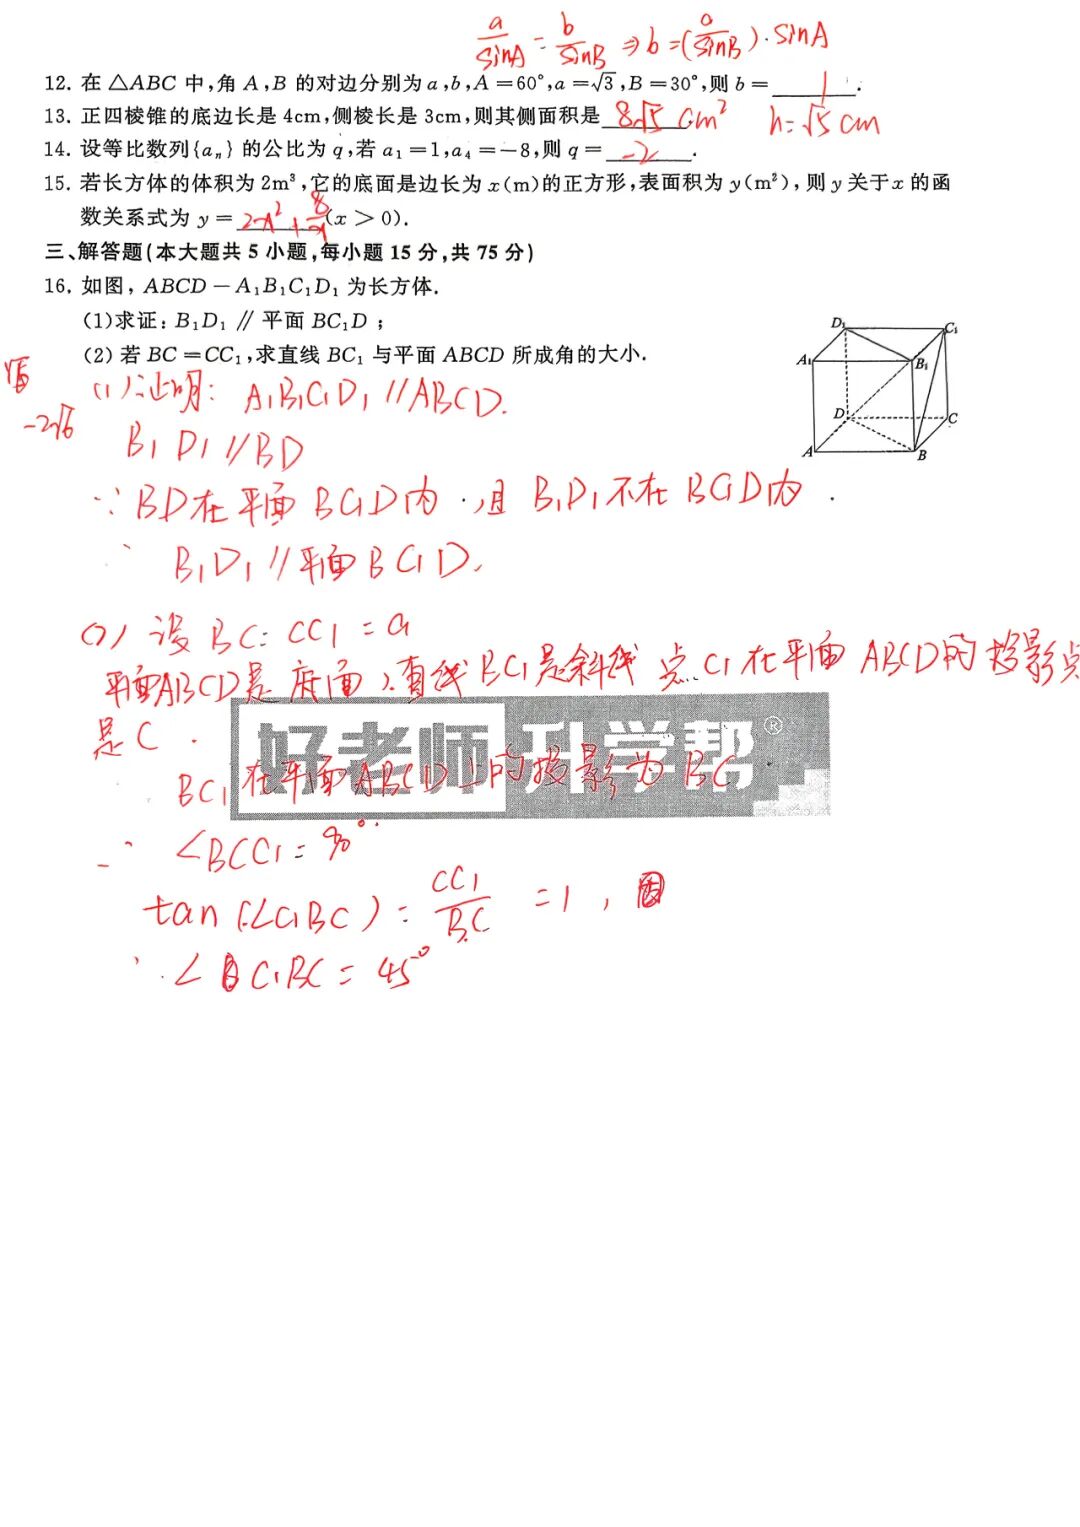 a/sinA = b/sinB ⇒ b = (a/sinB)·sinA
12. 在 △ABC 中,角 A,B 的对边分别为 a,b,A=60°,a=√3,B=30°,则 b= 1 .
13. 正四棱锥的底边长是 4cm,侧棱长是 3cm,则其侧面积是 8√5 cm² h=√5 cm
14. 设等比数列{aₙ} 的公比为 q,若 a₁=1,a₄=-8,则 q= -2 .
15. 若长方体的体积为 2m³,它的底面是边长为 x(m)的正方形,表面积为 y(m²),则 y 关于 x 的函
数关系式为 y= 2x²+8/x (x>0).
三、解答题(本大题共 5 小题,每小题 15 分,共 75 分)
16. 如图, ABCD-A₁B₁C₁D₁ 为长方体.
(1)求证: B₁D₁ // 平面 BC₁D ;
(2) 若 BC=CC₁,求直线 BC₁ 与平面 ABCD 所成角的大小.
D₁ C₁
A₁ B₁
D C
A B
-2√6
(1)证明: A₁B₁C₁D₁//ABCD.
B₁D₁//BD
∵BD在平面BC₁D内,且B₁D₁不在BC₁D内.
∴ B₁D₁//平面BC₁D.
(2) 设BC=CC₁=a
平面ABCD是底面,直线BC₁是斜线 点C₁在平面ABCD的投影点
是C.
好老师 升学帮®
BC₁在平面ABCD上的投影为BC
∴ ∠BCC₁=90°.
tan(∠C₁BC)=CC₁/BC=1,
∴ ∠C₁BC=45°